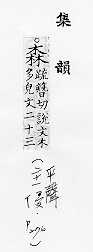 集韻
○森疏簪切說文木
多皃文二十三
(平聲
二十一侵.